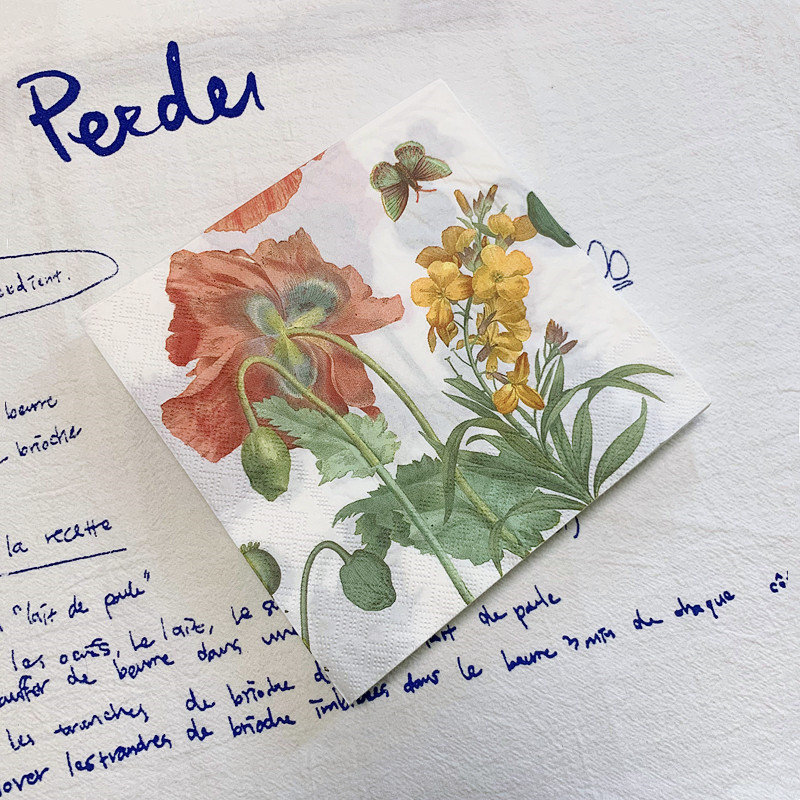 Perdu
redient.
beurre
brioche
la recette
"lait de poule"
les oeufs, le lait, le su
auffer de beurre dans un
lait de poule
les tranches de brioche d
les tranches de brioche imbibées dans le beurre 3 min de chaque cô